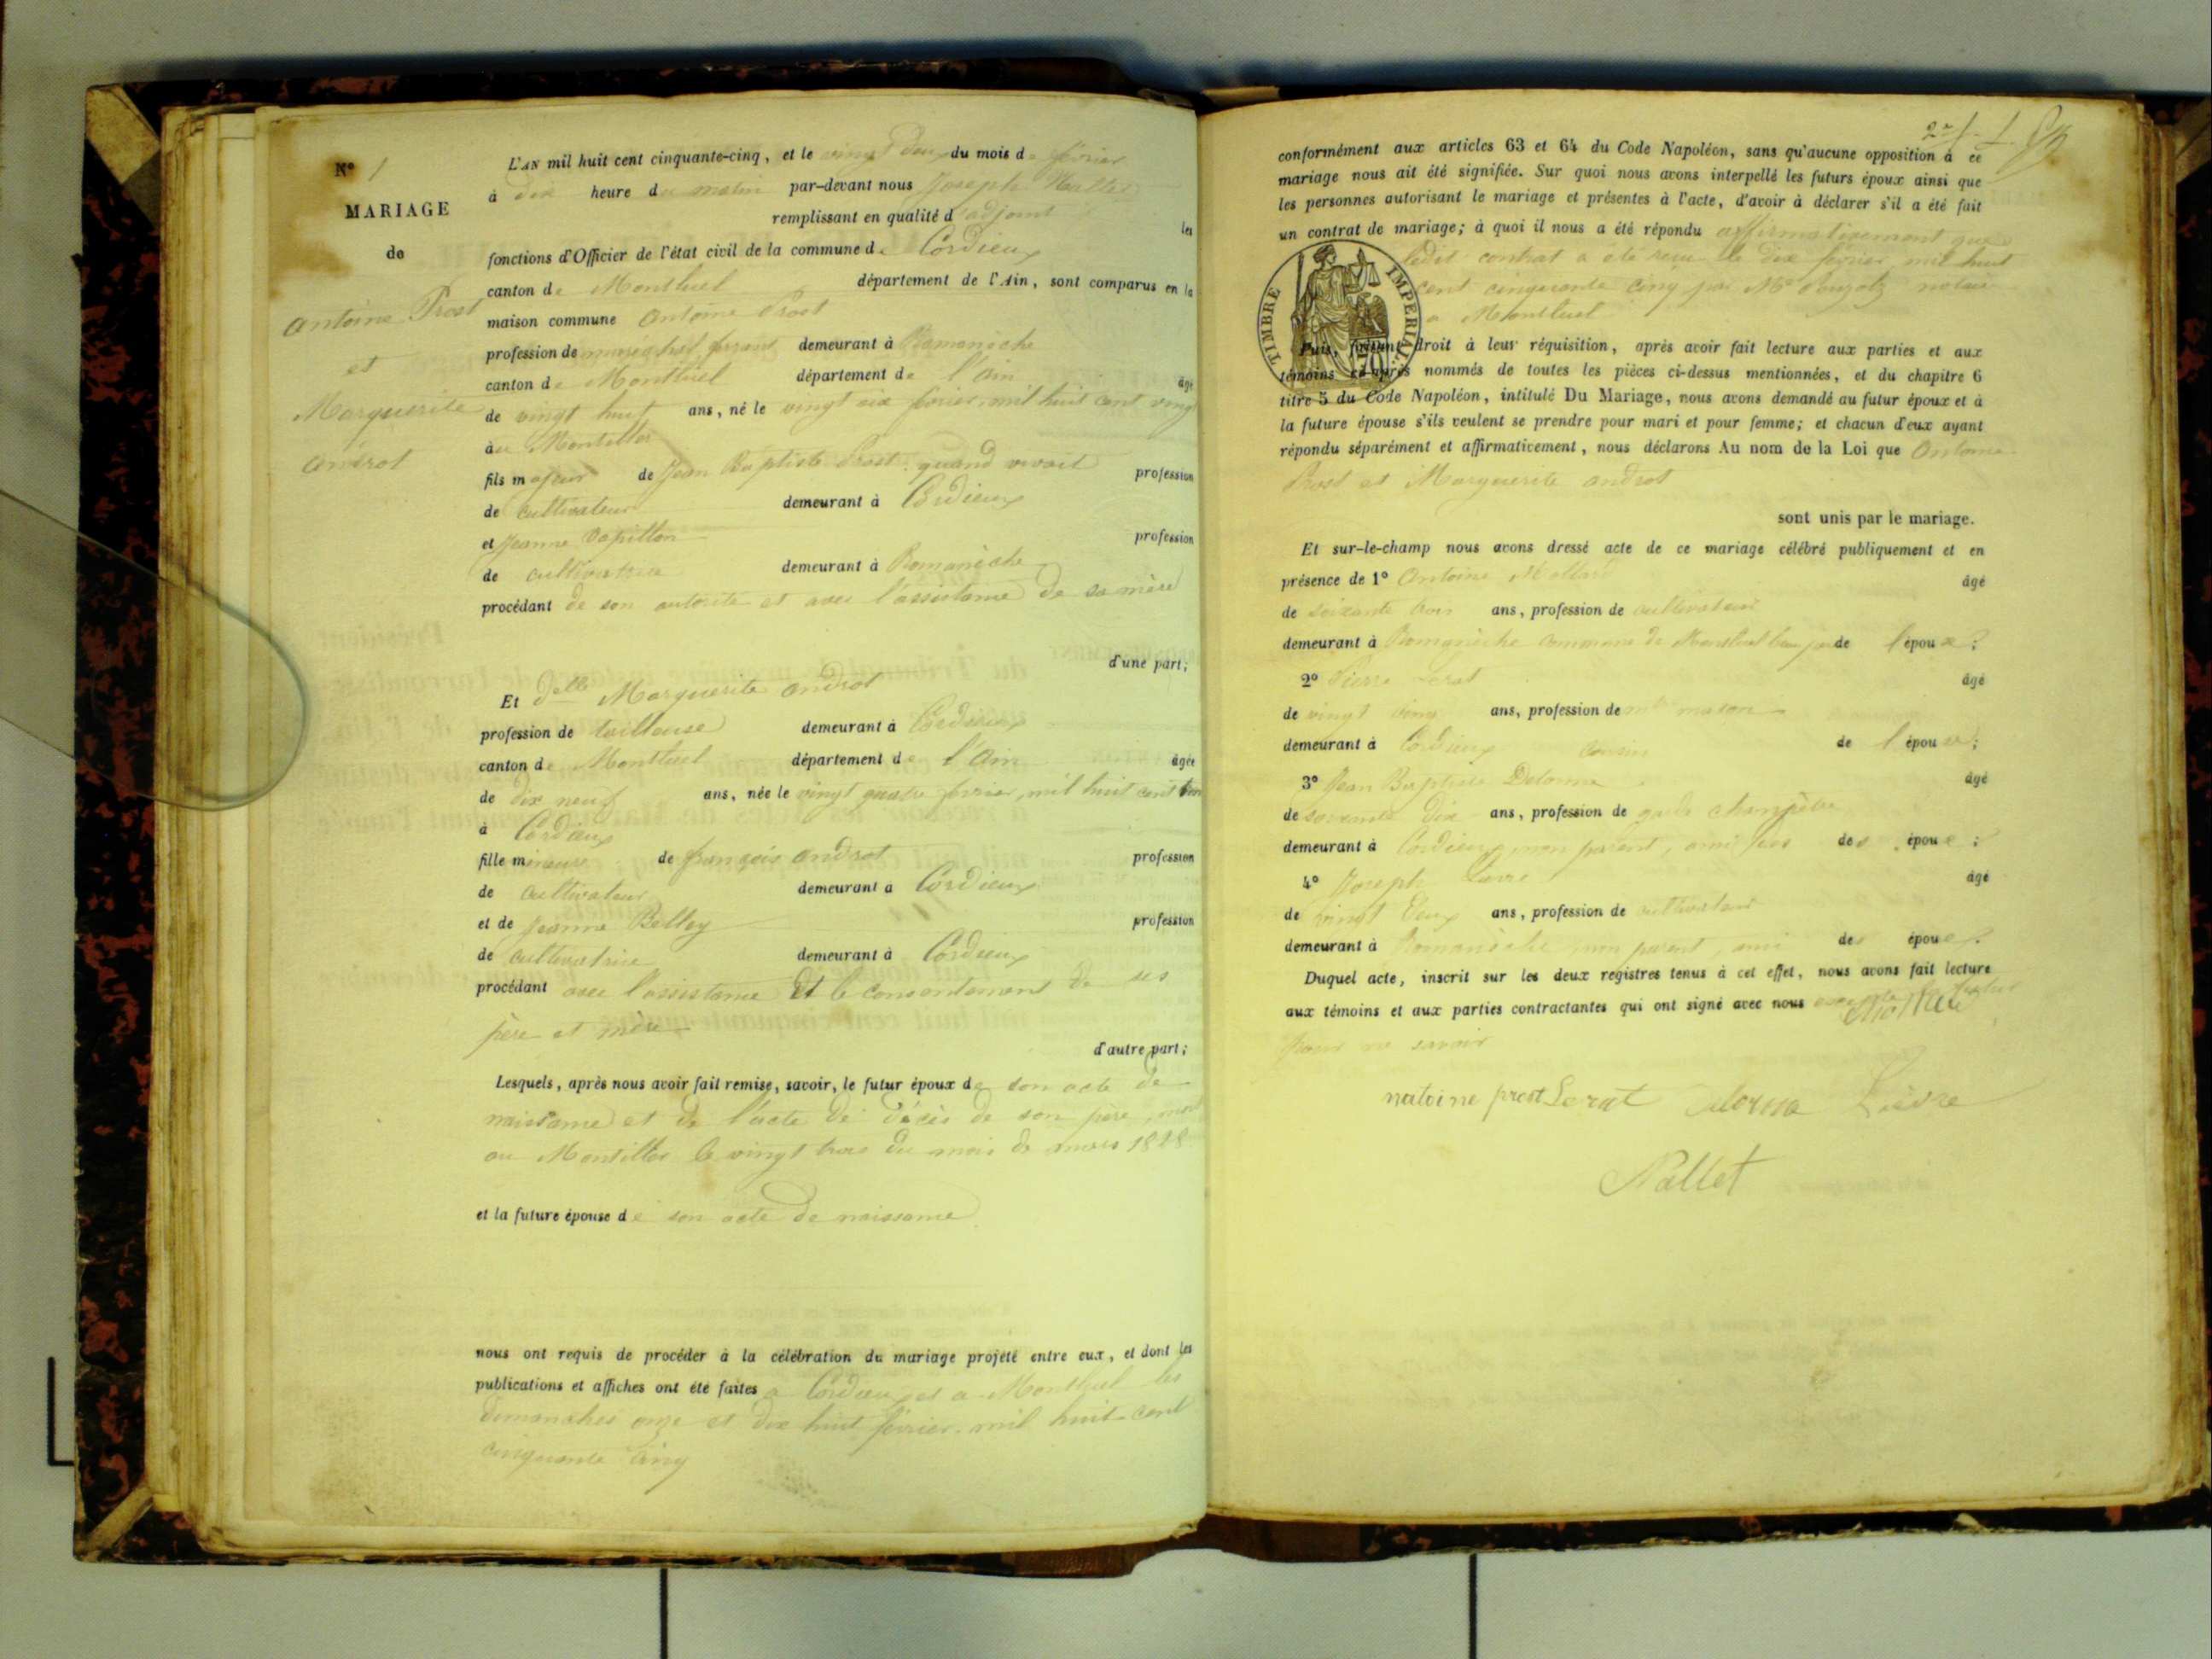 N° 1
MARIAGE
de
Antoine Prost
et
Marguerite
Androt
L'AN mil huit cent cinquante-cinq, et le vingt deux du mois de février
à dix heure du matin par-devant nous Joseph
remplissant en qualité d'adjoint les
fonctions d'Officier de l'état civil de la commune de Cordieux
canton de Montluel département de l'Ain, sont comparus en la
maison commune Antoine Prost
profession de maréchal ferrant demeurant à Romanèche
canton de Montluel département de l'Ain âgé
de vingt huit ans, né le vingt six février, mil huit cent vingt
au Montellier
fils majeur de Jean Baptiste Prost, quand vivait profession
de cultivateur demeurant à Cordieux
et Jeanne Papillon profession
de cultivatrice demeurant à Romanèche
procédant de son autorité et avec l'assistance de sa mère
d'une part;
Et delle Marguerite Androt
profession de tailleuse demeurant à Cordieux
canton de Montluel département de l'Ain âgée
de dix neuf ans, née le vingt quatre février, mil huit cent
à Cordieux
fille mineure de françois Androt profession
de cultivateur demeurant à Cordieux
et de Jeanne Belley profession
de cultivatrice demeurant à Cordieux
procédant avec l'assistance et le consentement de ses
père et mère
d'autre part;
Lesquels, après nous avoir fait remise, savoir, le futur époux de son acte de
naissance et de l'acte de décès de son père, mort
au Montellier le vingt trois du mois de mars 1828
et la future épouse de son acte de naissance
nous ont requis de procéder à la célébration du mariage projeté entre eux, et dont les
publications et affiches ont été faites a Cordieux et a Montluel les
dimanches onze et dix huit février mil huit cent
cinquante cinq
conformément aux articles 63 et 64 du Code Napoléon, sans qu'aucune opposition à ce
mariage nous ait été signifiée. Sur quoi nous avons interpellé les futurs époux ainsi que
les personnes autorisant le mariage et présentes à l'acte, d'avoir à déclarer s'il a été fait
un contrat de mariage; à quoi il nous a été répondu affirmativement que
ledit contrat a été reçu le dix février mil huit
cent cinquante cinq par Me notaire
a Montluel
TIMBRE IMPERIAL
Puis, faisant droit à leur réquisition, après avoir fait lecture aux parties et aux
témoins ci-après nommés de toutes les pièces ci-dessus mentionnées, et du chapitre 6
titre 5 du Code Napoléon, intitulé Du Mariage, nous avons demandé au futur époux et à
la future épouse s'ils veulent se prendre pour mari et pour femme; et chacun d'eux ayant
répondu séparément et affirmativement, nous déclarons Au nom de la Loi que Antoine
Prost et Marguerite Androt
sont unis par le mariage.
Et sur-le-champ nous avons dressé acte de ce mariage célébré publiquement et en
présence de 1° Antoine âgé
de soixante trois ans, profession de cultivateur
demeurant à Romanèche commune de Montluel de l'époux;
2° Pierre Lerat âgé
de vingt cinq ans, profession de maçon
demeurant à Cordieux cousin de l'épouse;
3° Jean Baptiste Delorme âgé
de dix ans, profession de garde champêtre
demeurant à Cordieux, non parent, ami des époux;
4° Joseph Lièvre âgé
de vingt deux ans, profession de cultivateur
demeurant à Romanèche non parent, ami des époux.
Duquel acte, inscrit sur les deux registres tenus à cet effet, nous avons fait lecture
aux témoins et aux parties contractantes qui ont signé avec nous
pour ne savoir
natoine prost Lerat delorme Lièvre
Nallet